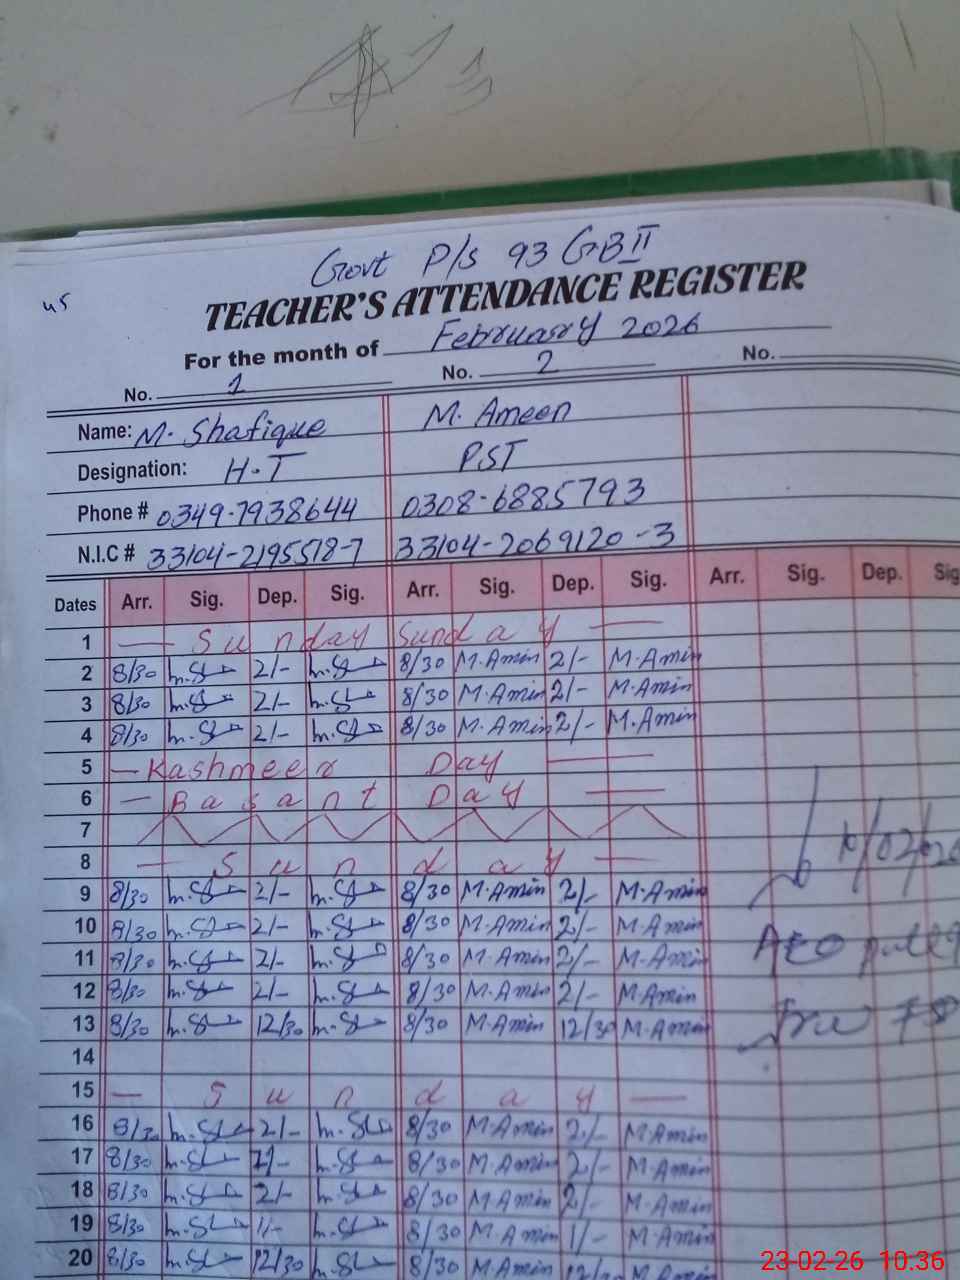 Govt P/S 93 GB II
45
TEACHER'S ATTENDANCE REGISTER
For the month of February 2026
No. 1 No. 2 No.
Name: M. Shafique M. Ameen
Designation: H.T PST
Phone # 0349-7938644 0308-6885793
N.I.C # 33104-2195518-7 33104-2069120-3
Dates Arr. Sig. Dep. Sig. Arr. Sig. Dep. Sig. Arr. Sig. Dep. Sig
1 — Sunday Sunday —
2 8/30 2/- 8/30 M.Amin 2/- M.Amin
3 8/30 2/- 8/30 M.Amin 2/- M.Amin
4 8/30 2/- 8/30 M.Amin 2/- M.Amin
5 — Kashmeer Day —
6 — Basant Day —
7
8 — Sunday —
9 8/30 2/- 8/30 M.Amin 2/- M.Amin
10 8/30 2/- 8/30 M.Amin 2/- M.Amin
11 8/30 2/- 8/30 M.Amin 2/- M.Amin
12 8/30 2/- 8/30 M.Amin 2/- M.Amin
13 8/30 12/30 8/30 M.Amin 12/30 M.Amin
14
15 — Sunday —
16 8/30 2/- 8/30 M.Amin 2/- M.Amin
17 8/30 2/- 8/30 M.Amin 2/- M.Amin
18 8/30 2/- 8/30 M.Amin 2/- M.Amin
19 8/30 1/- 8/30 M.Amin 1/- M.Amin
20 8/30 12/30 8/30 M.Amin 12/30 M.Amin
AEO
23-02-26 10:36